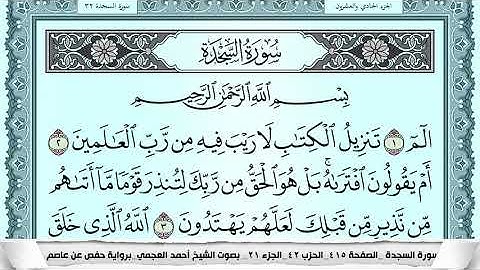 الجزء الحادي والعشرون سورة السجدة ٣٢
سُورَةُ السَّجْدَةِ
بِسْمِ ٱللَّهِ ٱلرَّحْمَٰنِ ٱلرَّحِيمِ
الٓمٓ ١ تَنزِيلُ ٱلْكِتَٰبِ لَا رَيْبَ فِيهِ مِن رَّبِّ ٱلْعَٰلَمِينَ ٢
أَمْ يَقُولُونَ ٱفْتَرَىٰهُ ۚ بَلْ هُوَ ٱلْحَقُّ مِن رَّبِّكَ لِتُنذِرَ قَوْمًا مَّآ أَتَىٰهُم
مِّن نَّذِيرٍ مِّن قَبْلِكَ لَعَلَّهُمْ يَهْتَدُونَ ٣ ٱللَّهُ ٱلَّذِى خَلَقَ
سورة السجدة الصفحة ٤١٥ الحزب ٤٢ الجزء ٢١ بصوت الشيخ أحمد العجمي برواية حفص عن عاصم